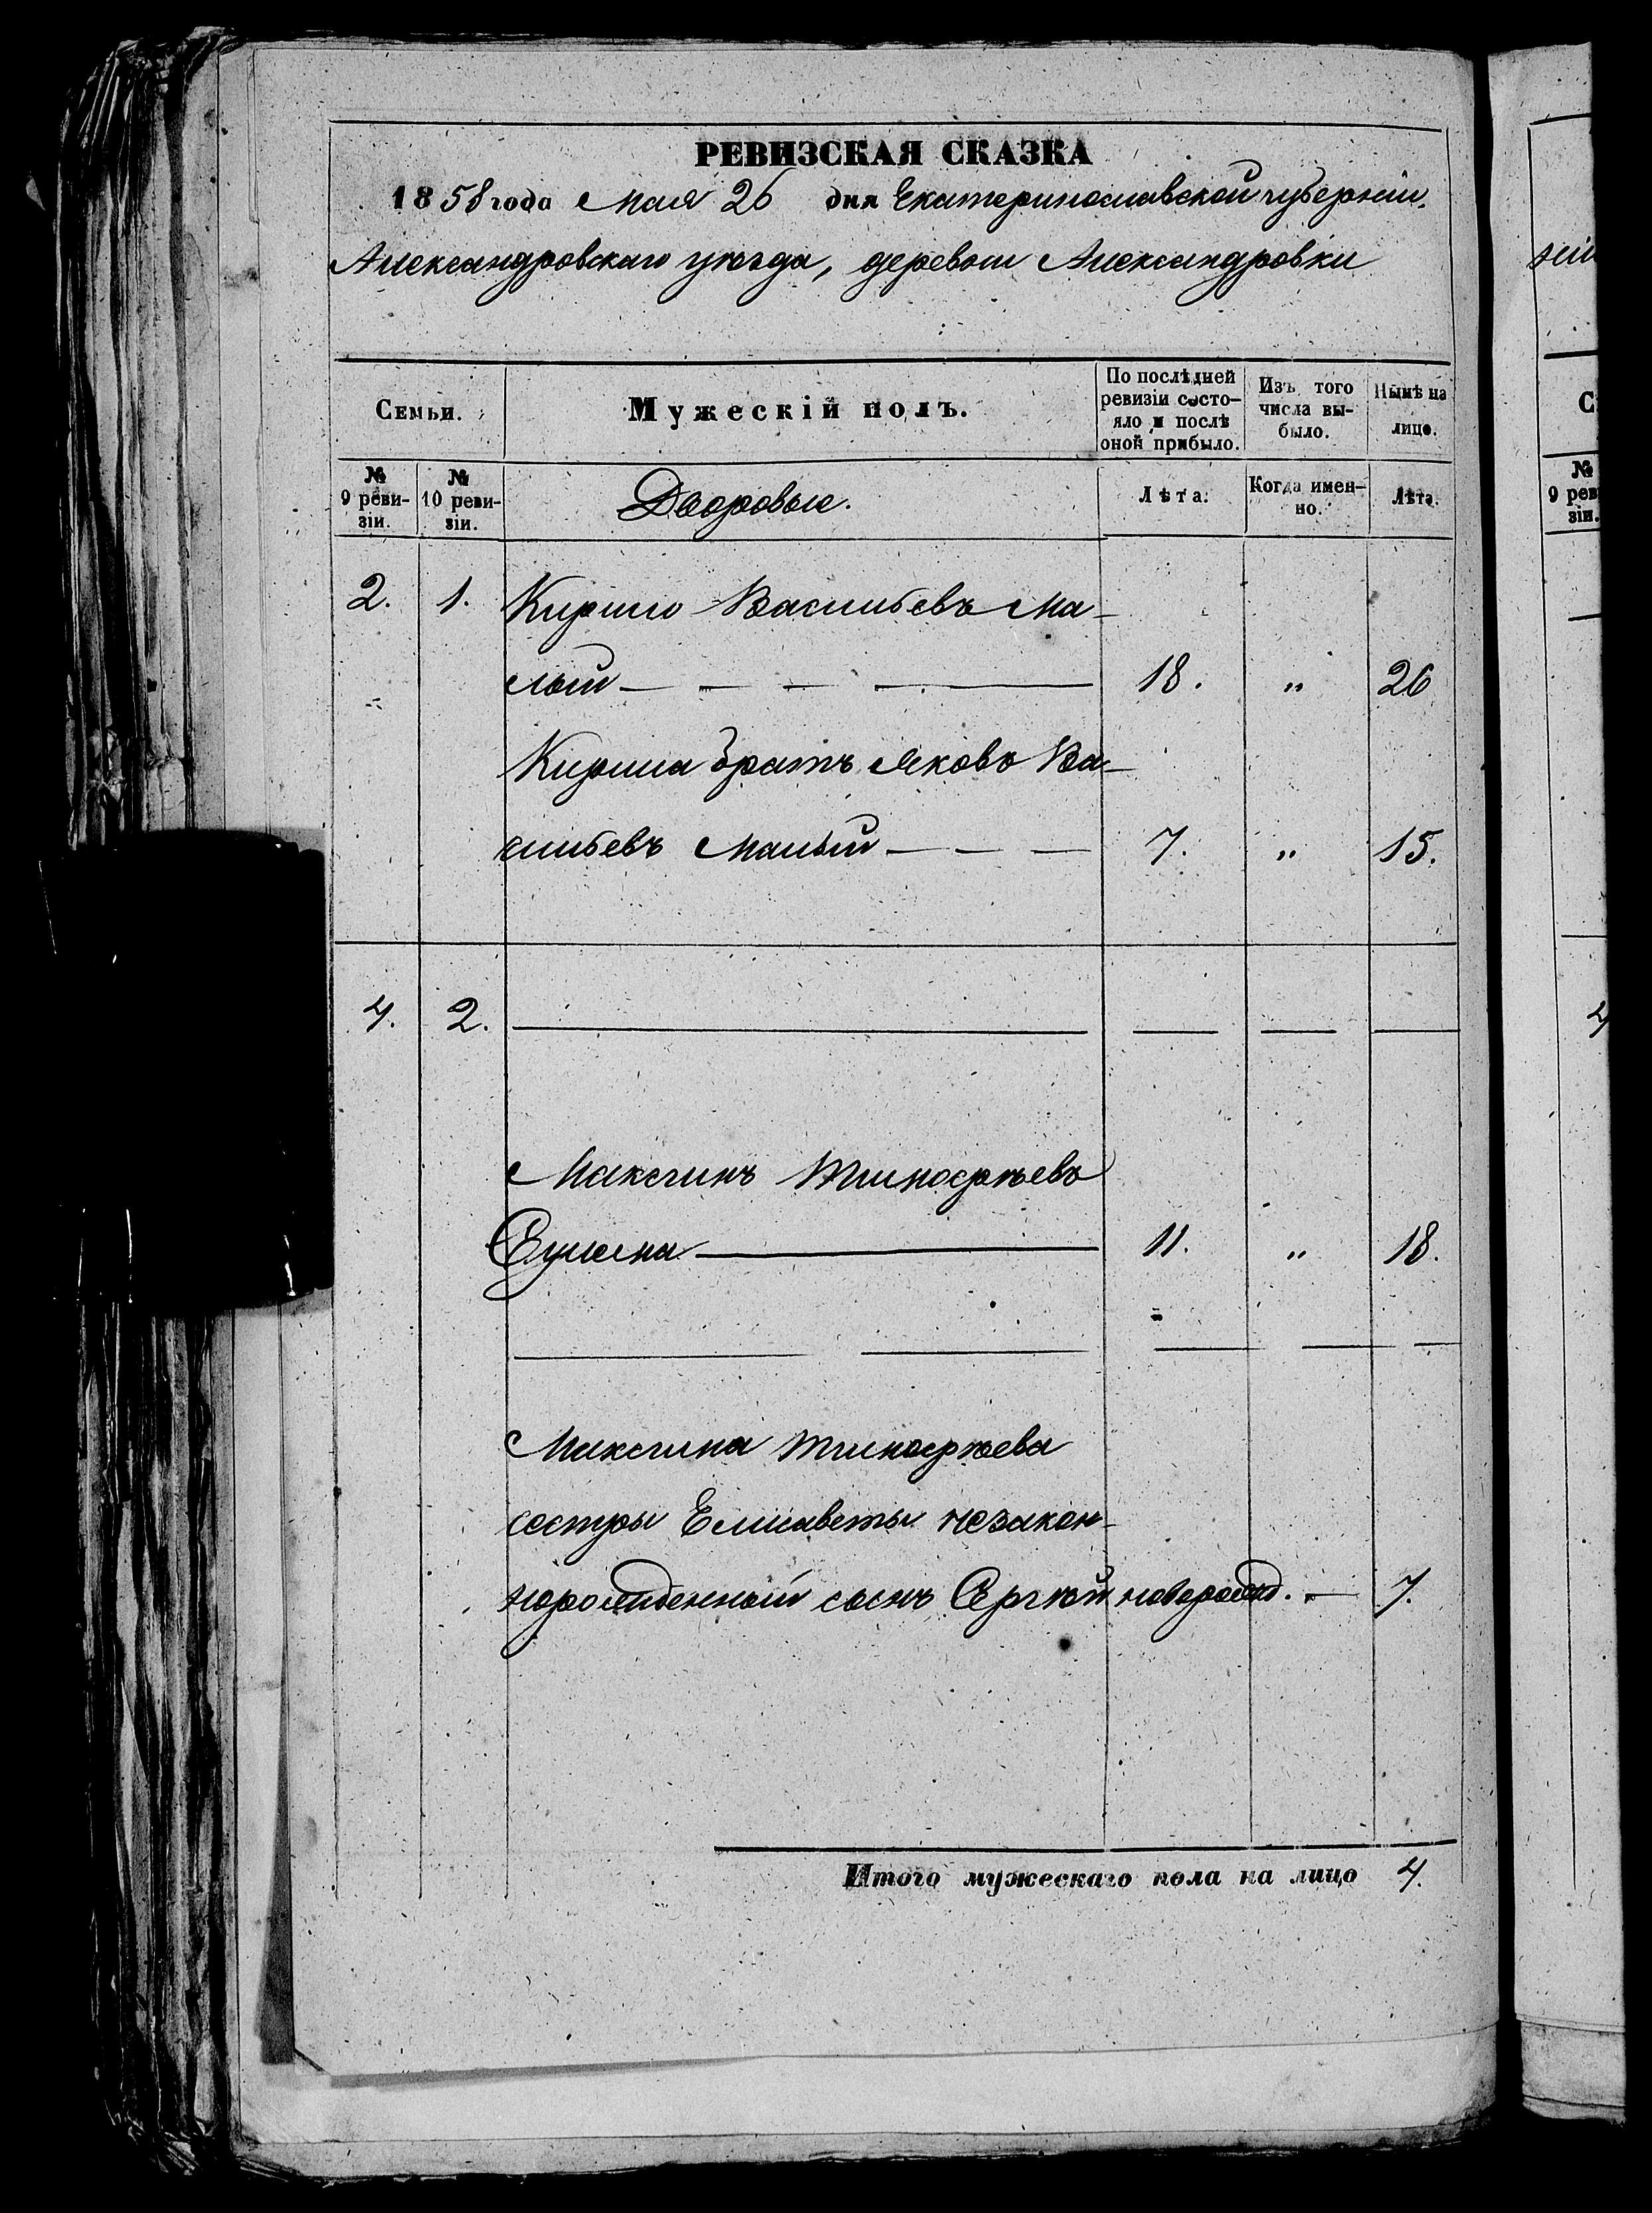 РЕВИЗСКАЯ СКАЗКА
1858 года Мая 26 дня Екатеринославской губерніи
Александровскаго уѣзда, деревни Александровки
Семьи.
Мужескій полъ.
По послѣдней ревизіи состо-
яло и послѣ оной прибыло.
Изъ того числа вы-
было.
Нынѣ на лицо.
№ 9 реви-
зіи.
№ 10 реви-
зіи.
Дворовые.
Лѣта.
Когда имен-
но.
Лѣта.
2. 1. Кирило Васильевъ Ма-
лый — — — — 18. " 26
Кирила братъ Яковъ Ва-
сильевъ Малый — — — 7. " 15.
4. 2.
Максимъ Тимофѣевъ
11. " 18.
Максима Тимофѣева
сестры Елисаветы незакон-
норожденный сынъ Сергѣй новорожд. — 7.
Итого мужескаго пола на лицо 4.
№
9 рев
зіи.
4